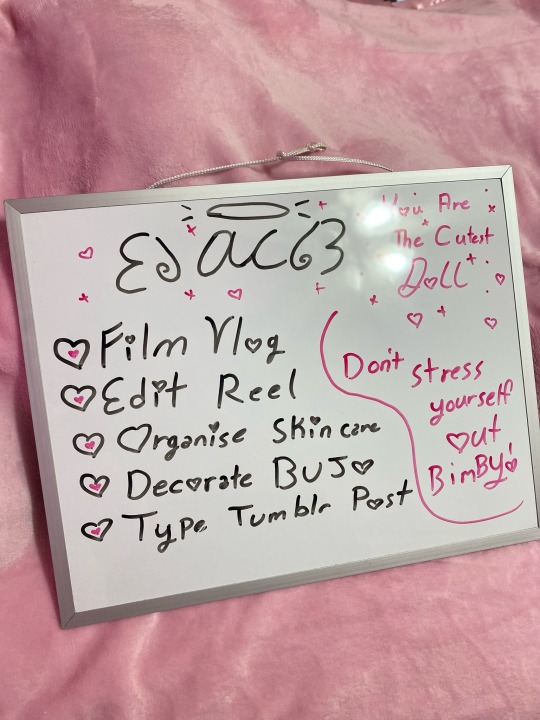 You Are
The Cutest
Doll
Film Vlog
Edit Reel
Organise Skincare
Decorate BUJO
Type Tumblr Post
Don't stress
yourself
out
BimBY!